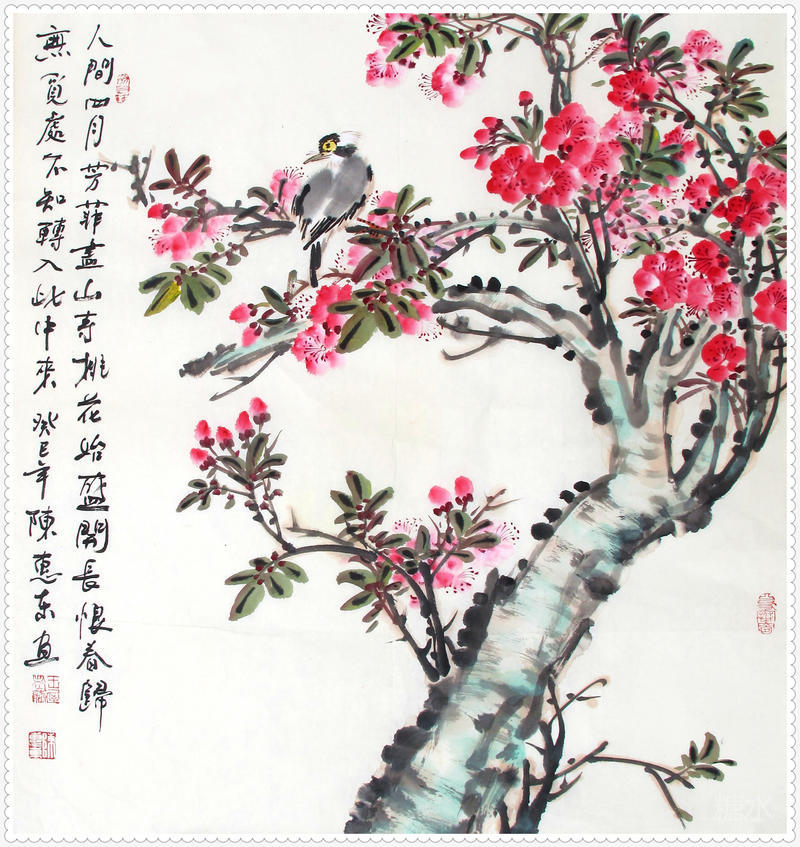 人間四月芳菲盡山寺桃花始盛開長恨春歸
無覓處不知轉入此中來 癸巳年陳惠东画
糖水